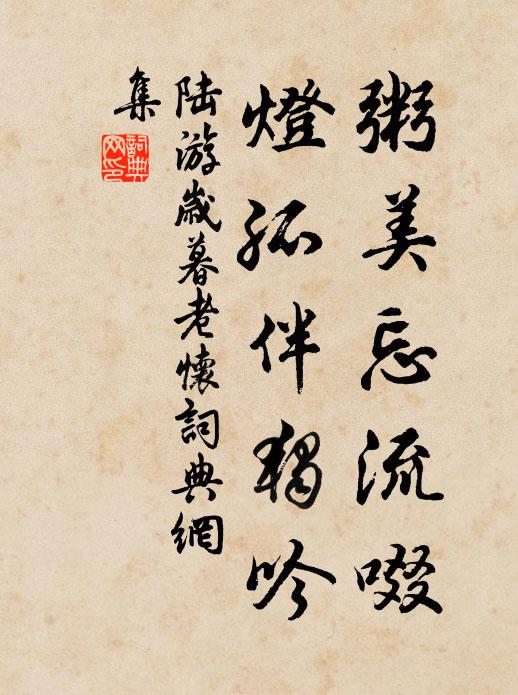 粥美忘流啜
燈孤伴独吟
陆游歲暮老懷詞典網
集
詞典
网印